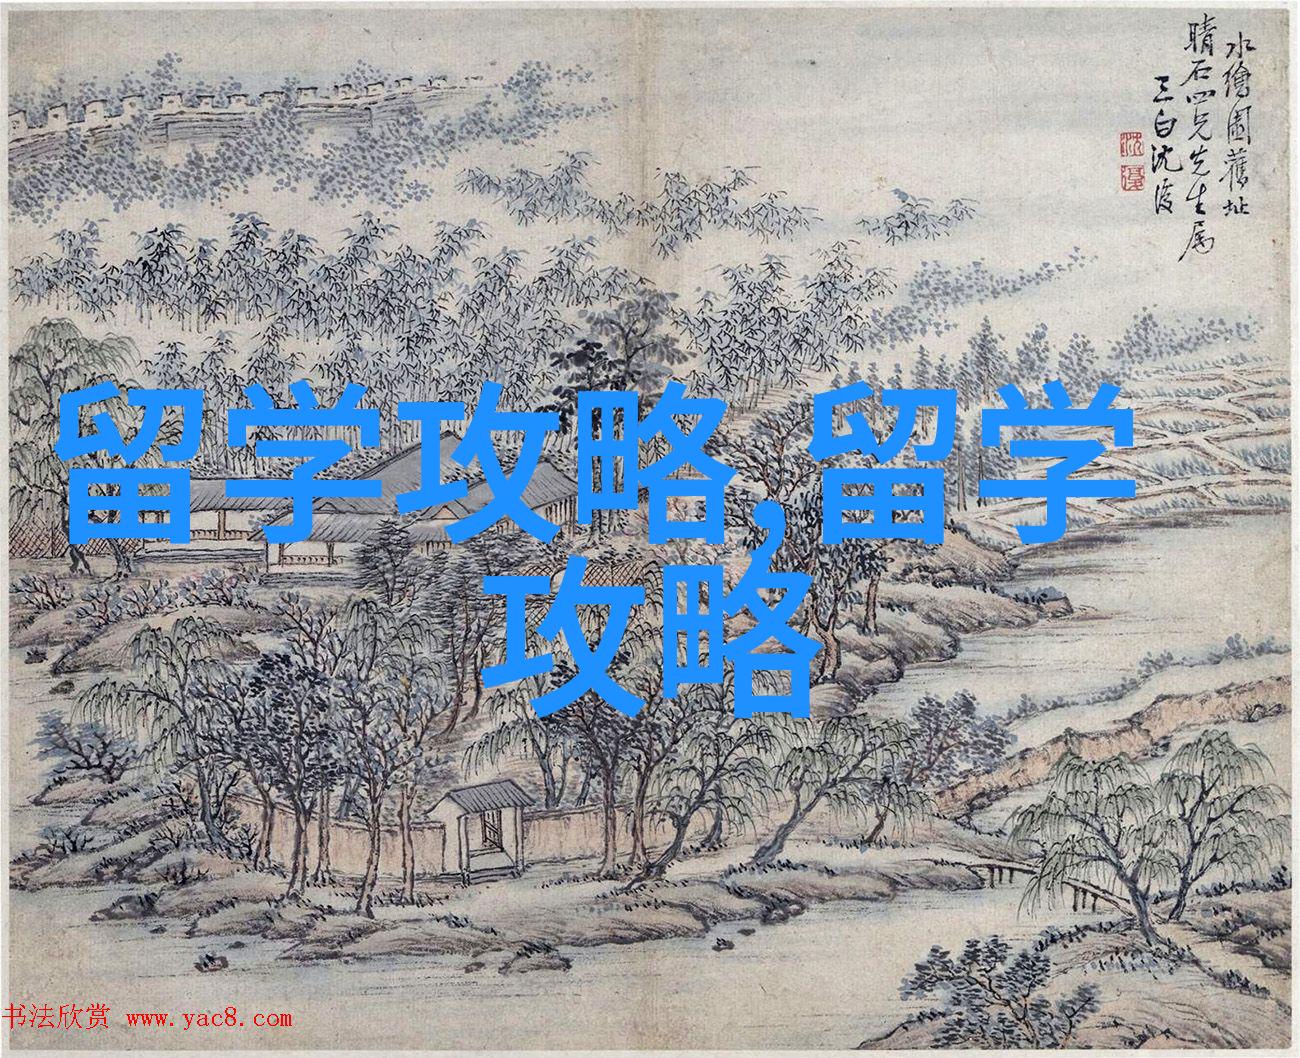 水繪園舊址
晴石四兄先生属
三白沈復
沈
復
留学攻略,留学
攻略
书法欣赏 www.yac8.com